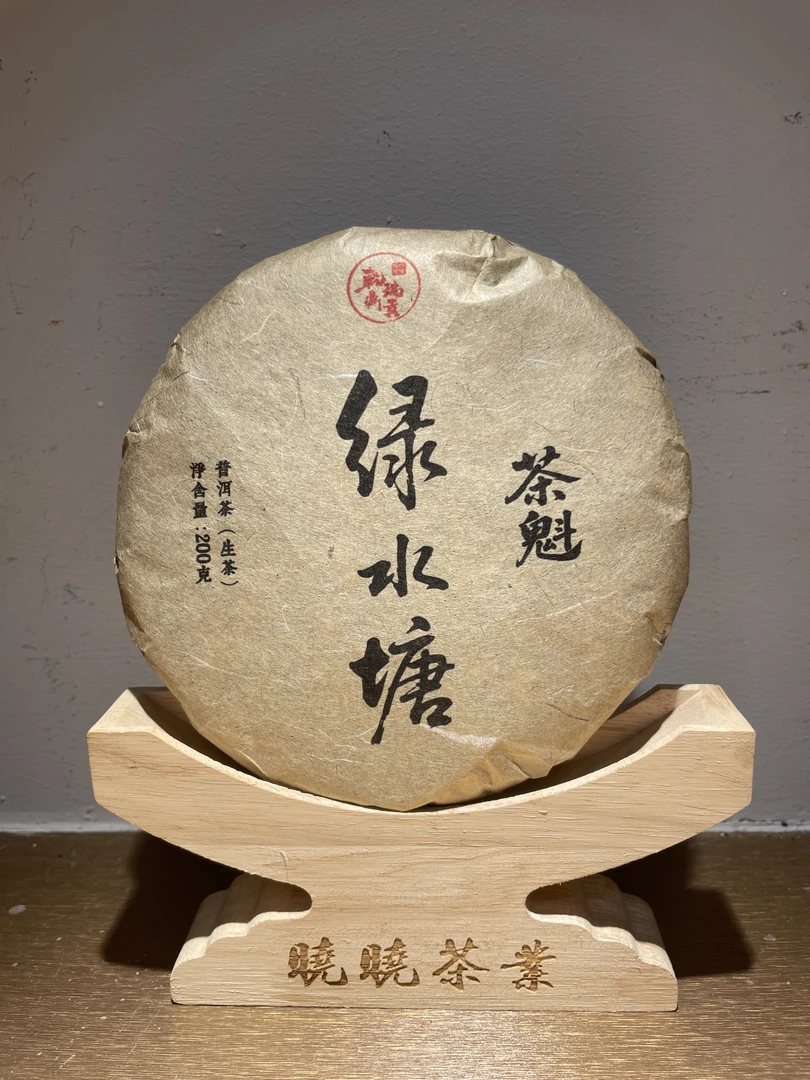 绿水塘
茶魁
普洱茶（生茶）
淨含量:200克
曉曉茶業